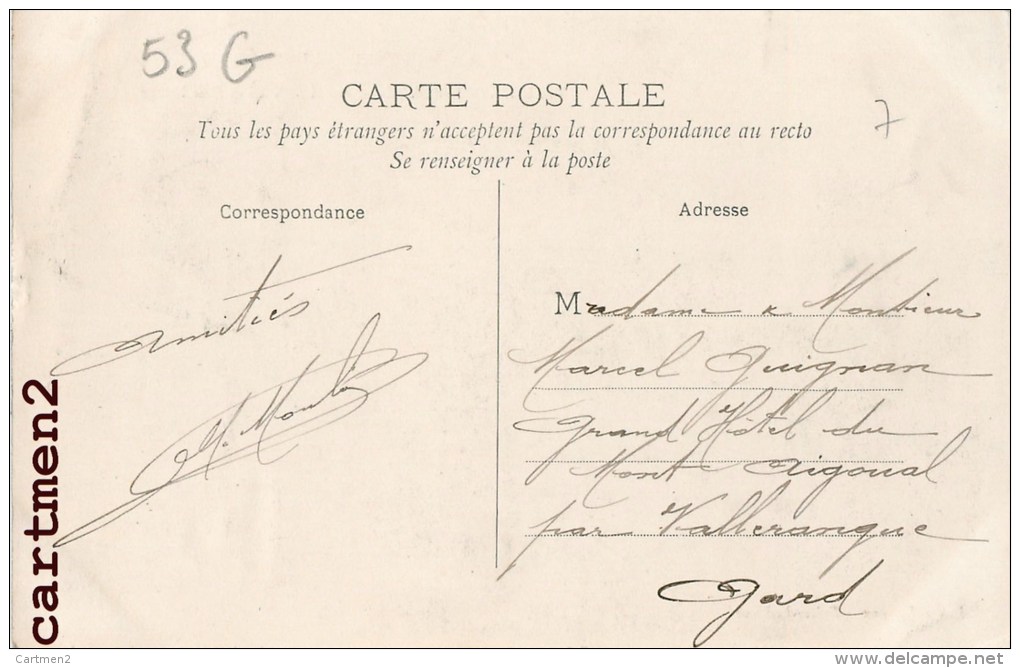 53 G
CARTE POSTALE
7
Tous les pays étrangers n'acceptent pas la correspondance au recto
Se renseigner à la poste
Correspondance
amitiés
Adresse
Madame & Monsieur
Marcel Guignan
Grand Hôtel du
Mont Aigoual
par Valleraugue
Gard
cartmen2
Cartmen2
delcampe.net